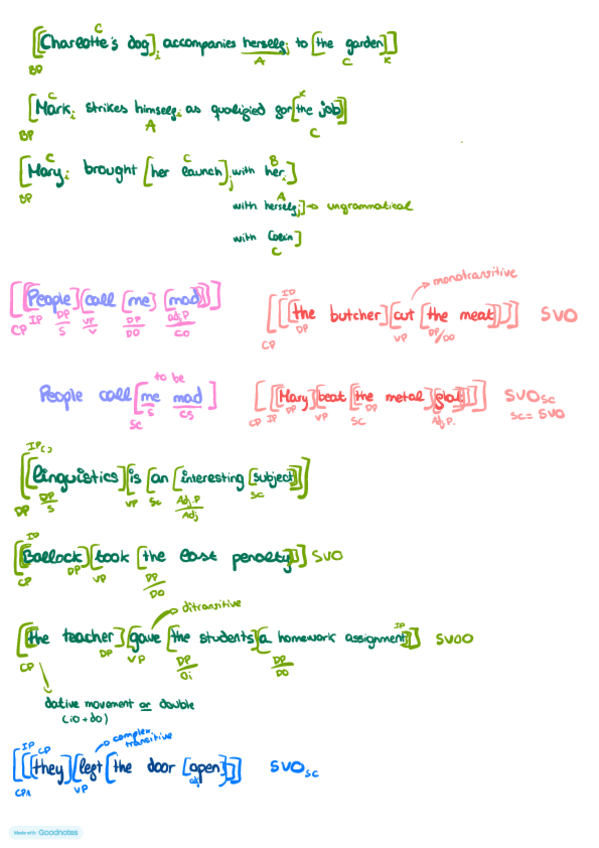 C
[[Charlotte's dog]i accompanies herselfi to [the garden]]
BD A C K
C K
[Marki strikes himselfi as qualified for [the job]]
BD A C
C C B
[Maryi brought [her launch]j with heri]
BD A
with herselfj] → ungrammatical
with Colin]
C
monotransitive
[[[People] [call [me] [mad]]]]
CP IP DP/S VP/V DP/DO adj.P/CO
IP
[[[the butcher] [cut [the meat]]]] SVO
CP DP VP DP/DO
to be
People call [me mad]
SC S CS
[[[Mary] [beat [the metal] [flat]]]] SVOSC
SC = SVO
CP IP DP VP SC DP Adj P.
IP
[[linguistics] [is [an [interesting [subject]]]]]
DP DP/S VP SC Adj.P/Adj SC
IP
[[Ballock] [took [the last penalty]]] SVO
CP DP VP DP/DO
ditransitive
IP
[[the teacher] [gave [the students] [a homework assignment]]] SVOO
CP DP VP DP/Oi DP/DO
dative movement or double
(iO + dO)
complex transitive
IP CP
[[[they] [left [the door [open]]]] SVOSC
CP VP adj
Made with Goodnotes